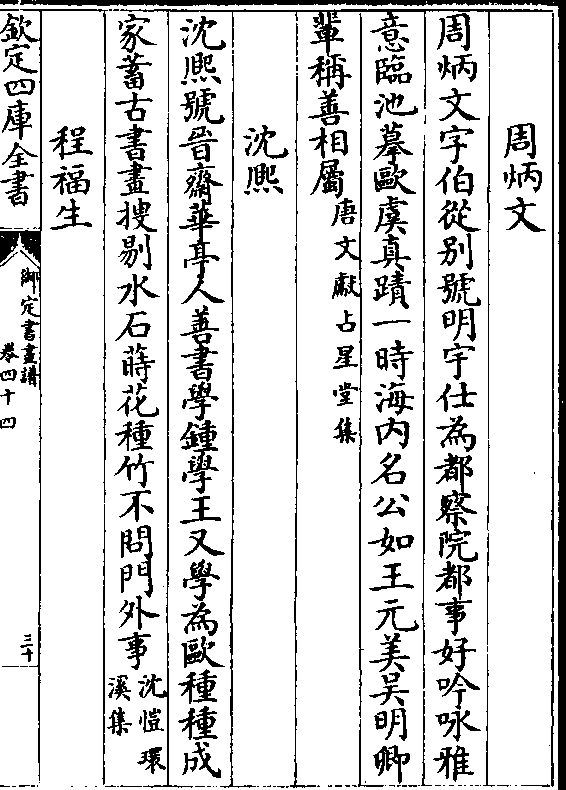 周炳文
周炳文字伯從别號明宇仕為都察院都事好吟咏雅
意臨池摹歐虞真蹟一時海内名公如王元美吴明卿
輩稱善相屬唐文獻占星堂集
沈熈
沈熈號晉齋華亭人善書學鍾學王又學為歐種種成
家蓄古書畫搜剔水石蒔花種竹不問門外事沈愷環
溪集
程福生
欽定四庫全書
御定書畫譜
卷四十四
三十